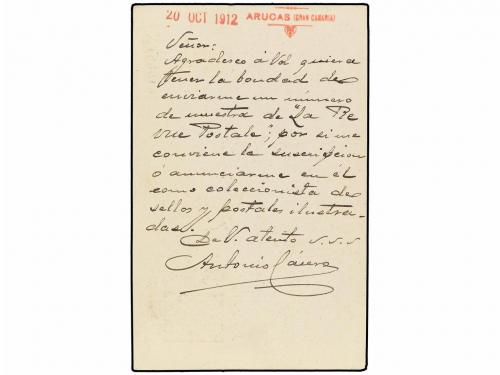 20 OCT 1912 ARUCAS (GRAN CANARIA)
Señor:
Agradesco á Vd quiera
tener la bondad de
enviarme un número
de muestra de "La Re
vue Postale"; por si me
conviene la suscripcion
ó anunciarme en él
como coleccionista de
sellos y postales ilustra-
das.
De V. atento s.s.s
Antonio